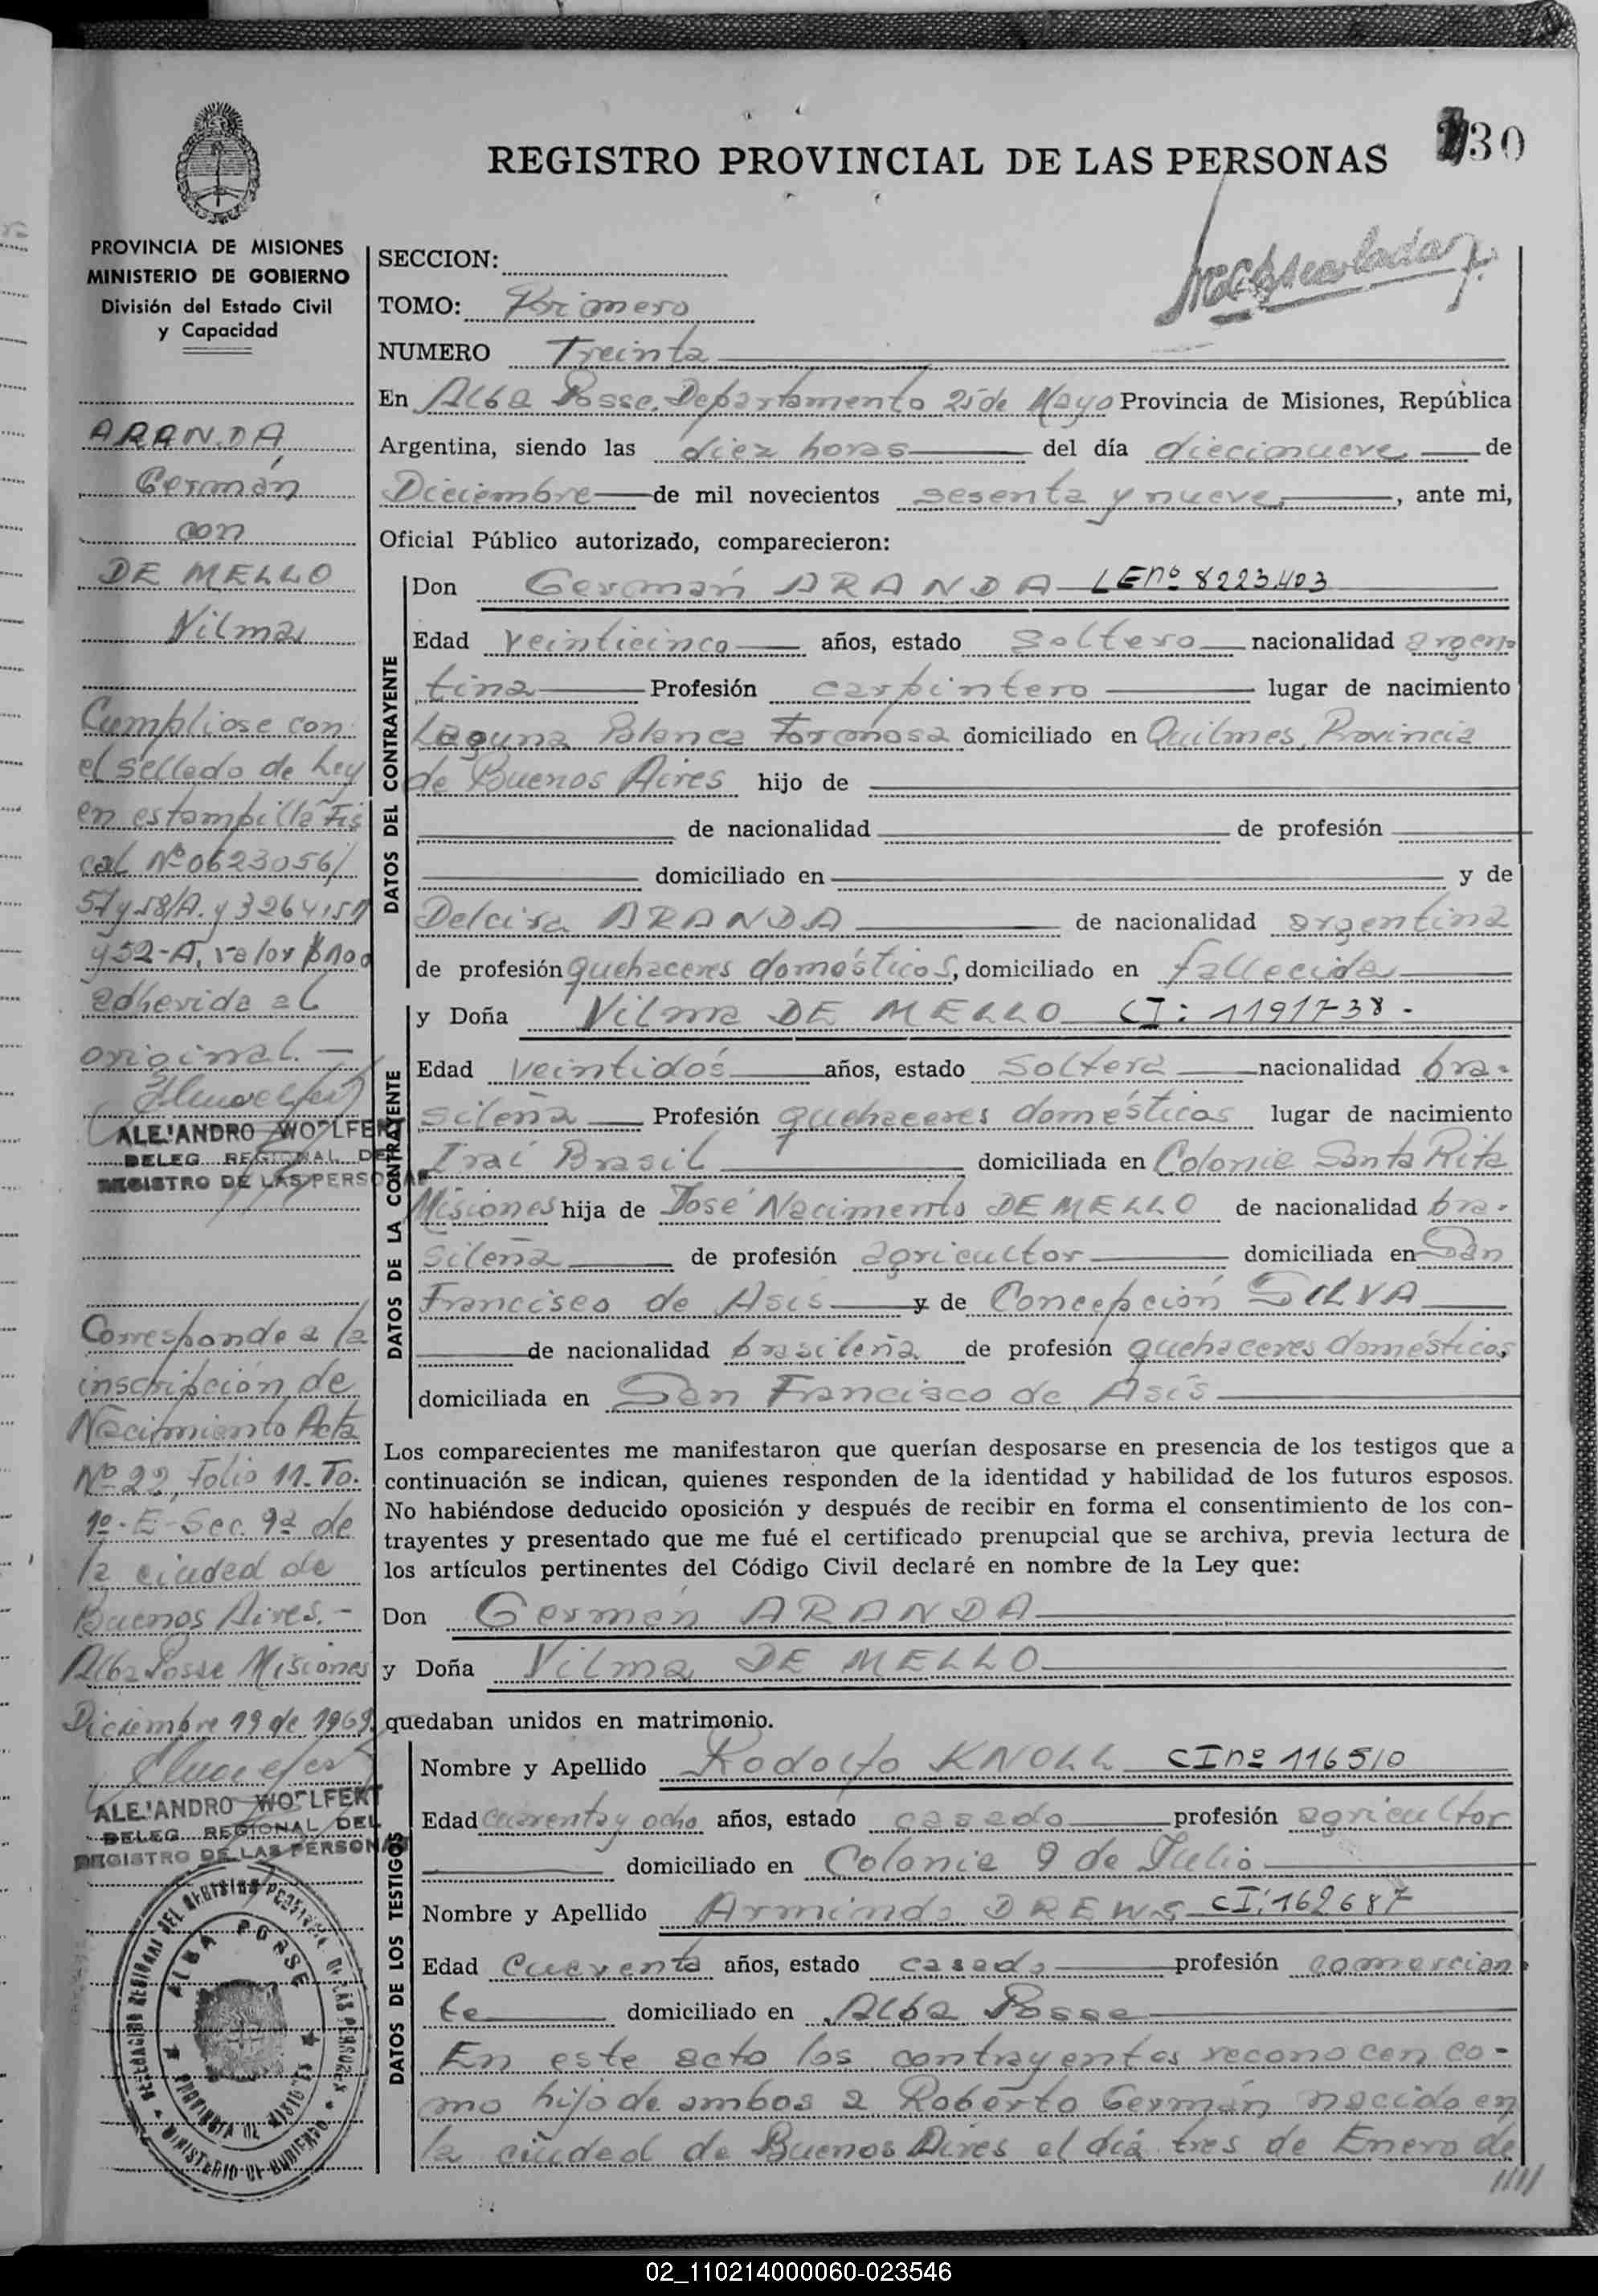 30
REGISTRO PROVINCIAL DE LAS PERSONAS
PROVINCIA DE MISIONES
MINISTERIO DE GOBIERNO
División del Estado Civil
y Capacidad
ARANDA
Germán
con
DE MELLO
Vilma
Cumpliose con
el sellado de Ley
en estampilla Fis
cal Nº 0623056/
57 y 58/A. y 3264151
y 52-A, valor $100
adherida al
original. —
ALEJANDRO WOLFERT
DELEG. REGIONAL DEL
REGISTRO DE LAS PERSONAS
Corresponde a la
inscripción de
Nacimiento Acta
Nº 22, Folio 11. To.
1º-E-Sec. 9ª de
la ciudad de
Buenos Aires. -
Alba Posse Misiones
Diciembre 19 de 1969.
ALEJANDRO WOLFERT
DELEG. REGIONAL DEL
REGISTRO DE LAS PERSONAS
DELEGACION REGIONAL DEL REGISTRO PROVINCIAL DE LAS PERSONAS
ALBA POSSE
PROVINCIA DE MISIONES
MINISTERIO DE GOBIERNO
SECCION:
TOMO: Primero
NUMERO Treinta
En Alba Posse. Departamento 25 de Mayo Provincia de Misiones, República
Argentina, siendo las diez horas del día diecinueve de
Diciembre de mil novecientos sesenta y nueve, ante mi,
Oficial Público autorizado, comparecieron:
DATOS DEL CONTRAYENTE
Don Germán ARANDA LEnº 8223.403
Edad veinticinco años, estado soltero nacionalidad argen-
tina Profesión carpintero lugar de nacimiento
Laguna Blanca Formosa domiciliado en Quilmes, Provincia
de Buenos Aires hijo de
de nacionalidad de profesión
domiciliado en y de
Delcira ARANDA de nacionalidad argentina
de profesión quehaceres domésticos, domiciliado en fallecida
DATOS DE LA CONTRAYENTE
y Doña Vilma DE MELLO CI: 1191738.
Edad veintidós años, estado soltera nacionalidad bra-
sileña Profesión quehaceres domésticos lugar de nacimiento
Iraí Brasil domiciliada en Colonia Santa Rita
Misiones hija de José Nacimento DE MELLO de nacionalidad bra-
sileña de profesión agricultor domiciliada en San
Francisco de Asís y de Concepción SILVA
de nacionalidad brasileña de profesión quehaceres domésticos,
domiciliada en San Francisco de Asís
Los comparecientes me manifestaron que querían desposarse en presencia de los testigos que a
continuación se indican, quienes responden de la identidad y habilidad de los futuros esposos.
No habiéndose deducido oposición y después de recibir en forma el consentimiento de los con-
trayentes y presentado que me fué el certificado prenupcial que se archiva, previa lectura de
los artículos pertinentes del Código Civil declaré en nombre de la Ley que:
Don Germán ARANDA
y Doña Vilma DE MELLO
quedaban unidos en matrimonio.
DATOS DE LOS TESTIGOS
Nombre y Apellido Rodolfo KNOLL CInº 116510
Edad cuarenta y ocho años, estado casado profesión agricultor
domiciliado en Colonia 9 de Julio
Nombre y Apellido Armindo DREWS CI: 162687
Edad Cuarenta años, estado casado profesión comercian
te domiciliado en Alba Posse
En este acto los contrayentes reconocen co-
mo hijo de ambos a Roberto Germán nacido en
la ciudad de Buenos Aires el día tres de Enero de
/////
02_110214000060-023546